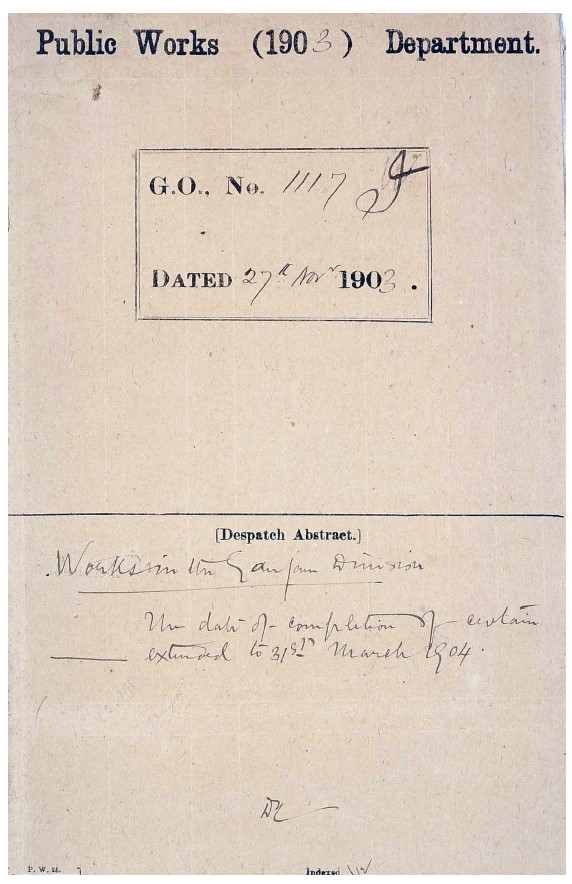 Public Works (1903) Department.
G.O., No. 1117 I
DATED 27th Novr 1903.
[Despatch Abstract.]
Works in the Ganjam Division
The date of completion of certain
extended to 31st March 1904.
P. W. 24.
Indexed